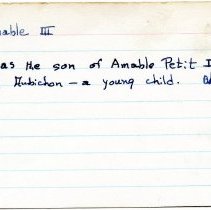 nable III
as the son of Amable Petit I
Aubichon - a young child.